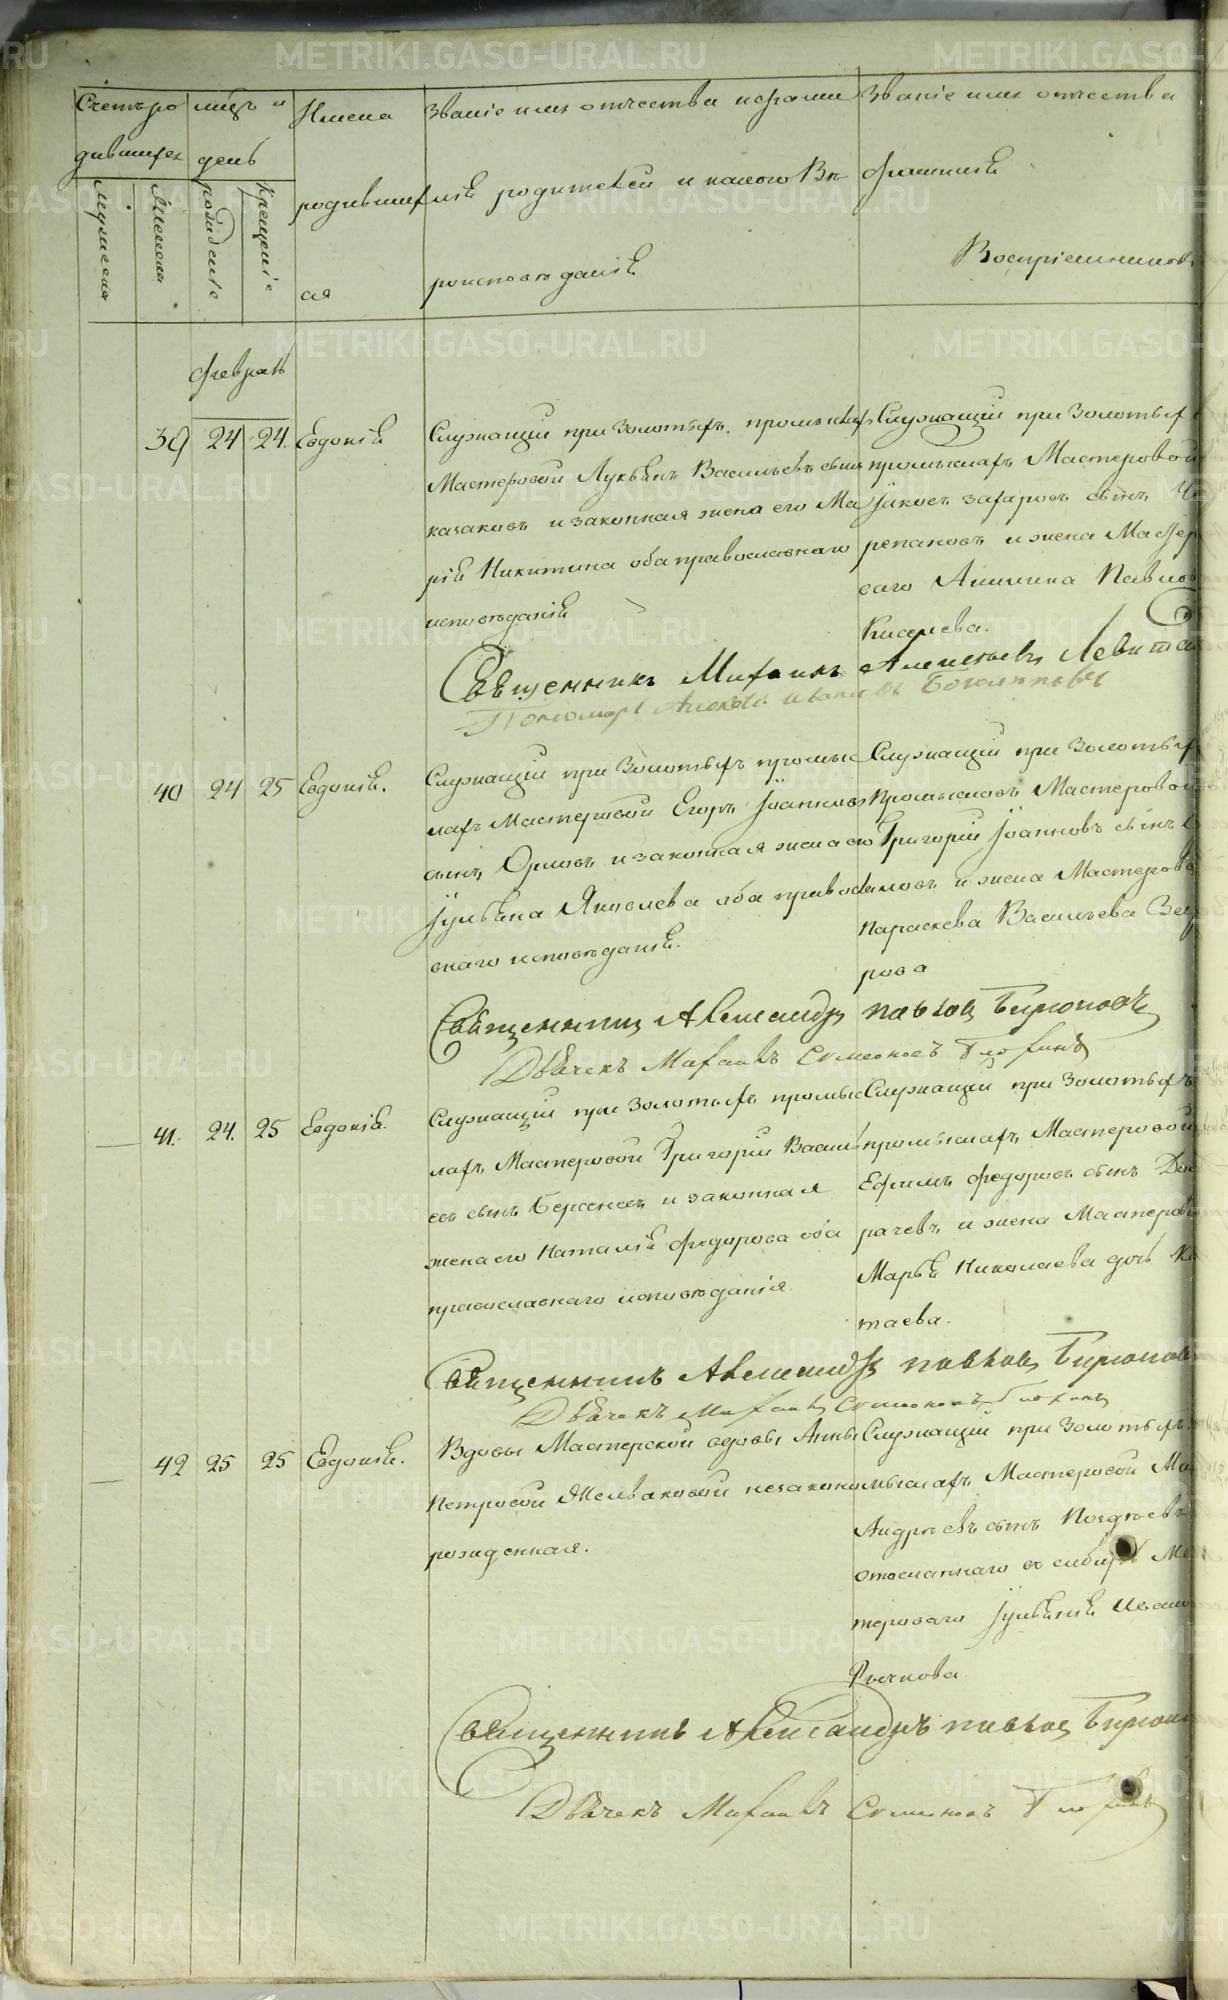 Счетъ ро
дившихся
Мужеска
Женска
мцъ и
день
рожденіе
крещеніе
Имена
родивших
ся
Званіе имя отчества и фами
лія родителей и какого Вѣ
роисповѣданія
Званіе имя отчества
Фамилія
Воспріемниковъ
Февраль
39 24 24. Евдокія
Служащій при Золотыхъ промысл
Мастеровой Лукьянъ Васильевъ сынъ
казаковъ и законная жена его Ма
рія Никитина оба православнаго
исповѣданія
Служащій при Золотых
промыслахъ Мастеровой
Іаковъ захаровъ сынъ Че
репановъ и жена Мастер
ваго Акилина Павлов
Киселева.
Священникъ Михаилъ Алексіевъ Левита
Пономарь
40 24 25 Евдокія.
Служащій при Золотыхъ промыс
лахъ Мастеровой Егоръ Іоанновъ
сынъ Орловъ и законная жена его
Іуліана Яковлева оба правосла
внаго исповѣданія.
Служащій при Золотых
Промысловъ Мастеровой
Григорій Іоанновъ сынъ
ловъ и жена Мастеров
Параскева Васильева Вед
рова
Священникъ Александръ павловъ Бирюковъ
Дьячекъ Михаилъ Симеоновъ
41. 24. 25 Евдокія.
Служащій при Золотыхъ промыс
лахъ Мастеровой Григорій Василь
евъ сынъ Берсеневъ и законная
жена его Наталія Федорова оба
православнаго исповѣданія
Служащій при Золотыхъ
промыслахъ Мастеровой
Ефимъ Федоровъ сынъ Де
рачевъ и жена Мастеров
Марья Николаева дочь К
таева.
Священникъ Александръ павловъ Бирюков
Дьячекъ Михаилъ Симеоновъ
42 25 25 Евдокія.
Вдовы Мастерской вдовы Анны
Петровой Желваковой незаконо
рожденная.
Служащій при Золотыхъ
мыслахъ Мастеровой Ми
Андреевъ сынъ Поздѣевъ
отосланнаго въ сибирь Ма
тероваго Іуліанія Иван
Рычкова
Священникъ Александръ павловъ Бирюков
Дьячекъ Михаилъ Симеоновъ
METRIKI.GASO-URAL.RU